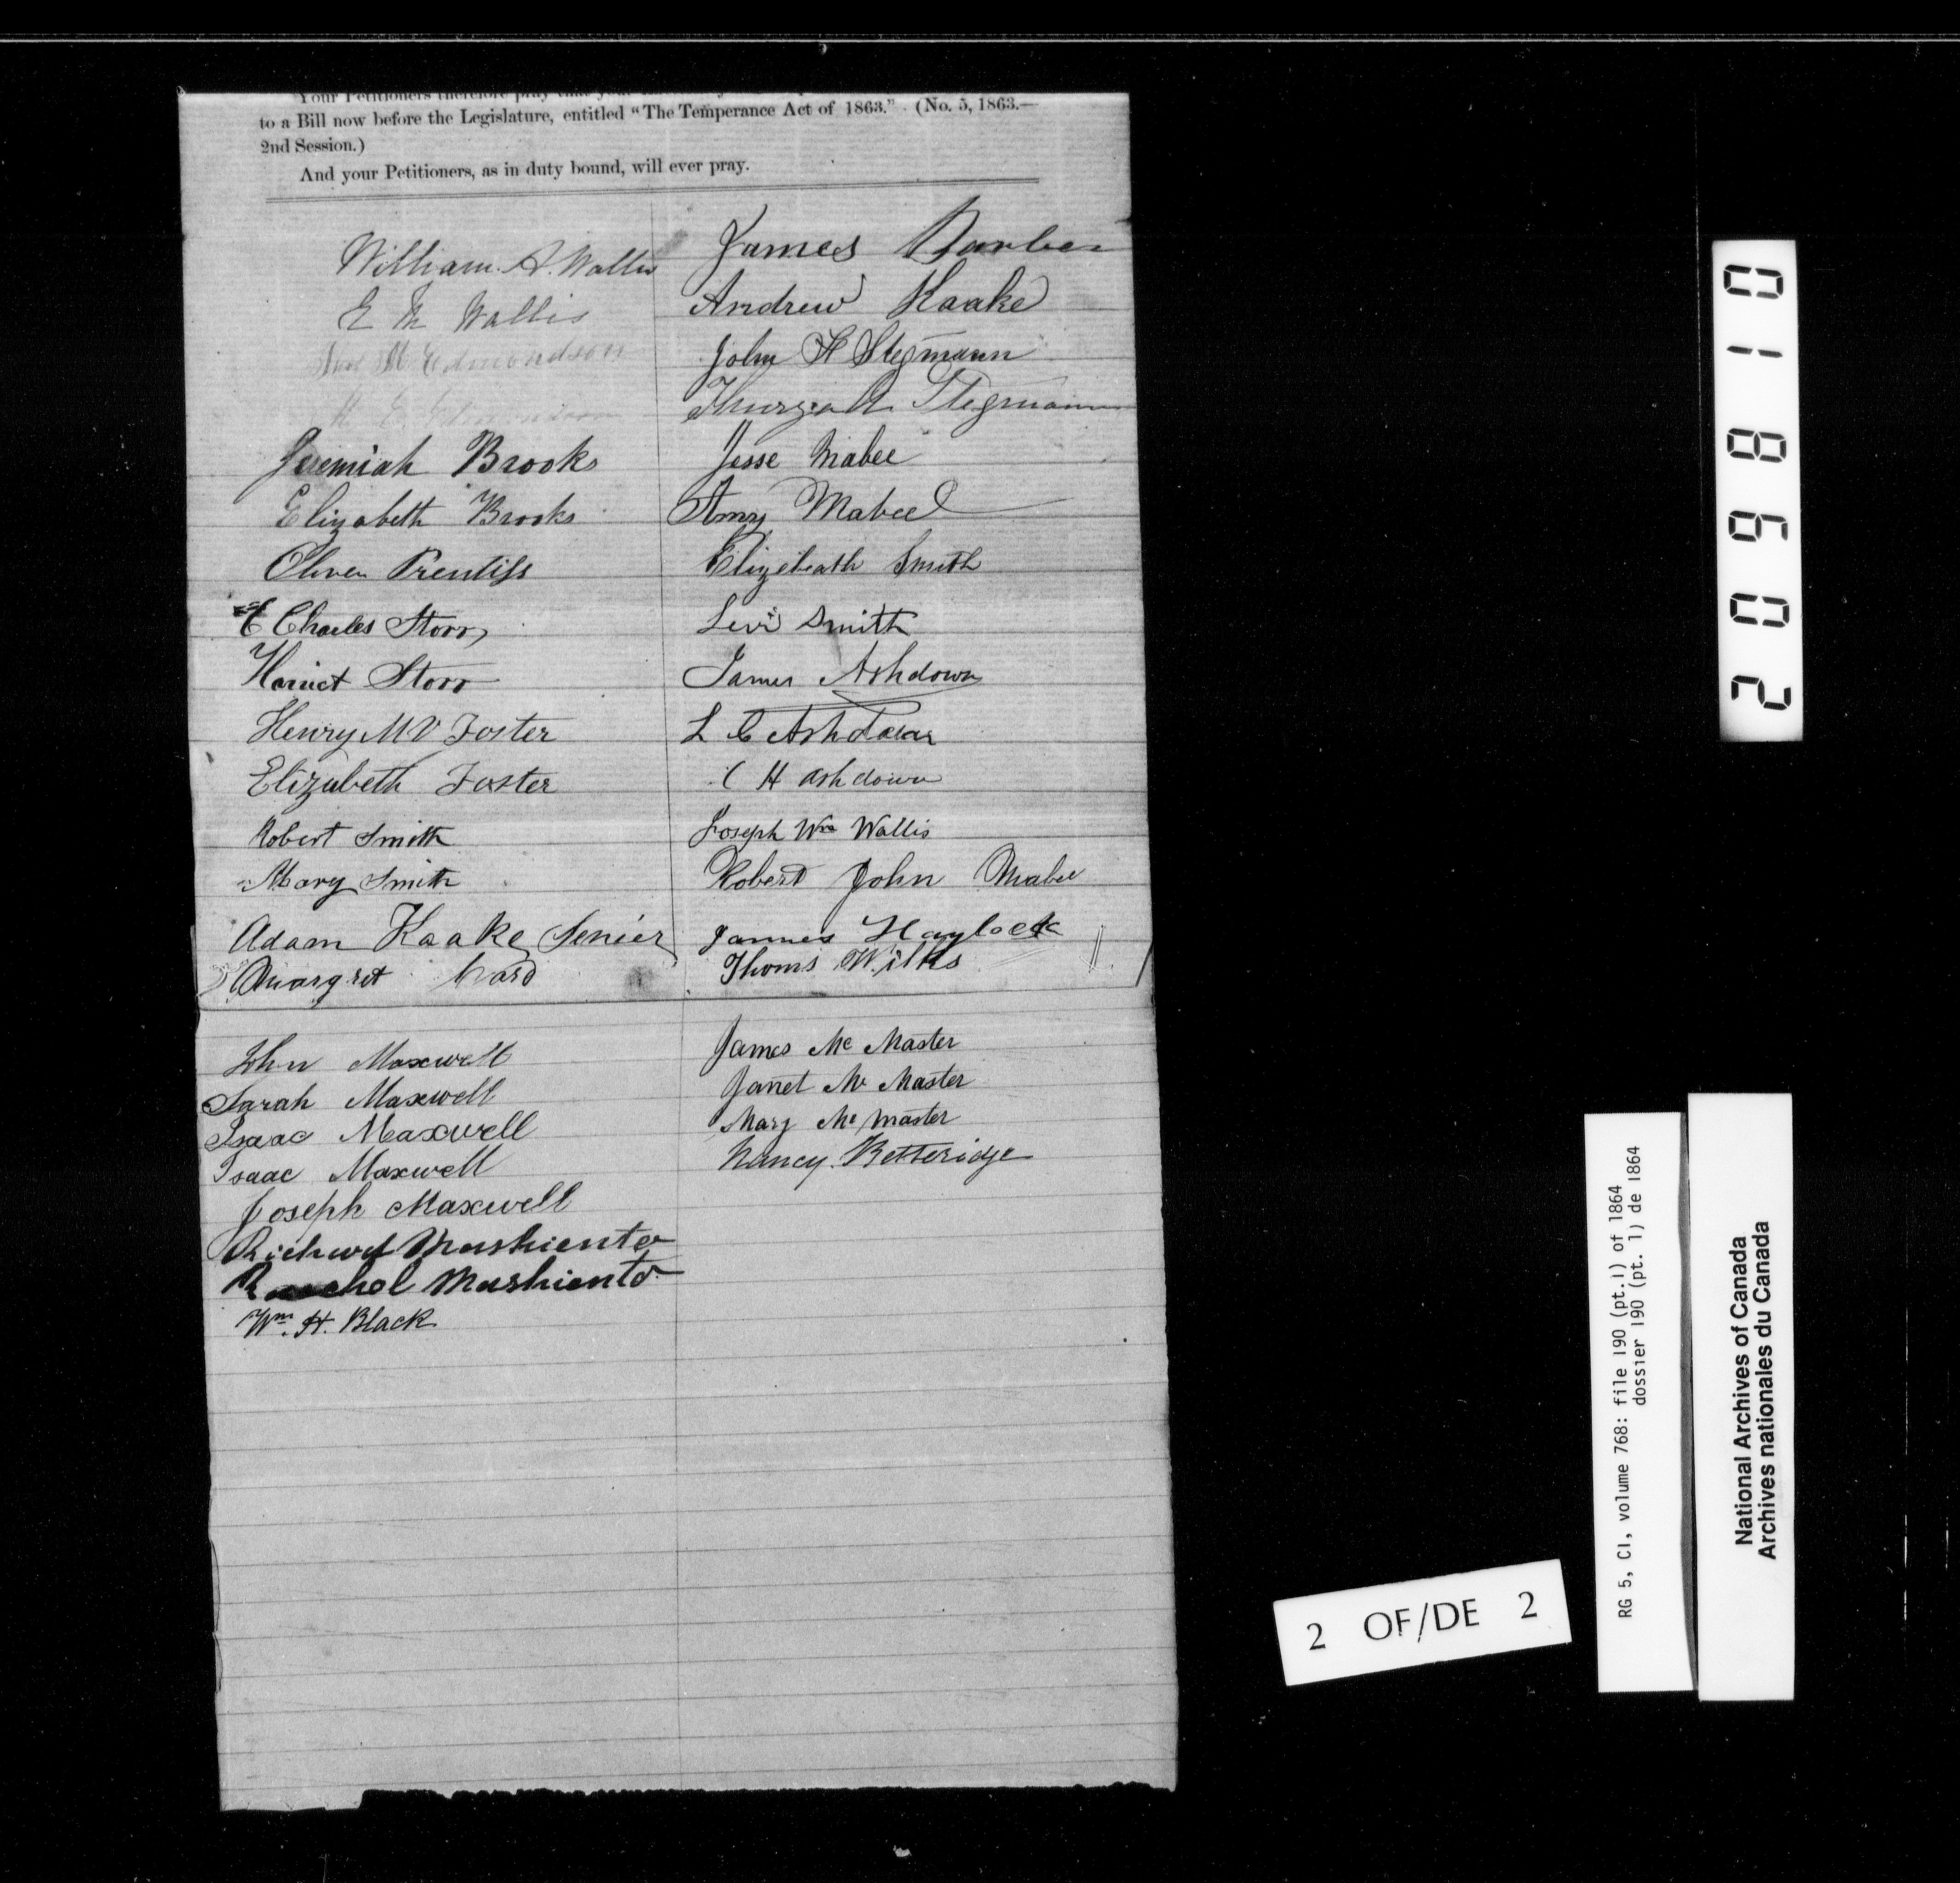 Your Petitioners therefore pray that your
to a Bill now before the Legislature, entitled "The Temperance Act of 1863." (No. 5, 1863.—
2nd Session.)
And your Petitioners, as in duty bound, will ever pray.
William A. Wallis
E M Wallis
Edmondson
Jeremiah Brooks
Elizabeth Brooks
Oliver Prentiss
E Charles Storr
Harriet Storr
Henry M V Foster
Elizabeth Foster
Robert Smith
Mary Smith
Adam Kaake Senier
Margret Ward
John Maxwell
Sarah Maxwell
Isaac Maxwell
Isaac Maxwell
Joseph Maxwell
Richard Mashiento
Rachel Mashiento
Wm. H. Black
James Barber
Andrew Kaake
John H Stegmann
Stegmann
Jesse Mabee
Amy Mabee
Elizebeath Smith
Levi Smith
James Ashdown
L C Ashdown
C H Ashdown
Joseph Wm Wallis
Robert John Mabee
James Haylock
Thoms Wilks
James Mc Master
Janet Mc Master
Mary Mc Master
Nancy Betteridge
209810
RG 5, C1, volume 768: file 190 (pt.1) of 1864
dossier 190 (pt. 1) de 1864
National Archives of Canada
Archives nationales du Canada
2 OF/DE 2